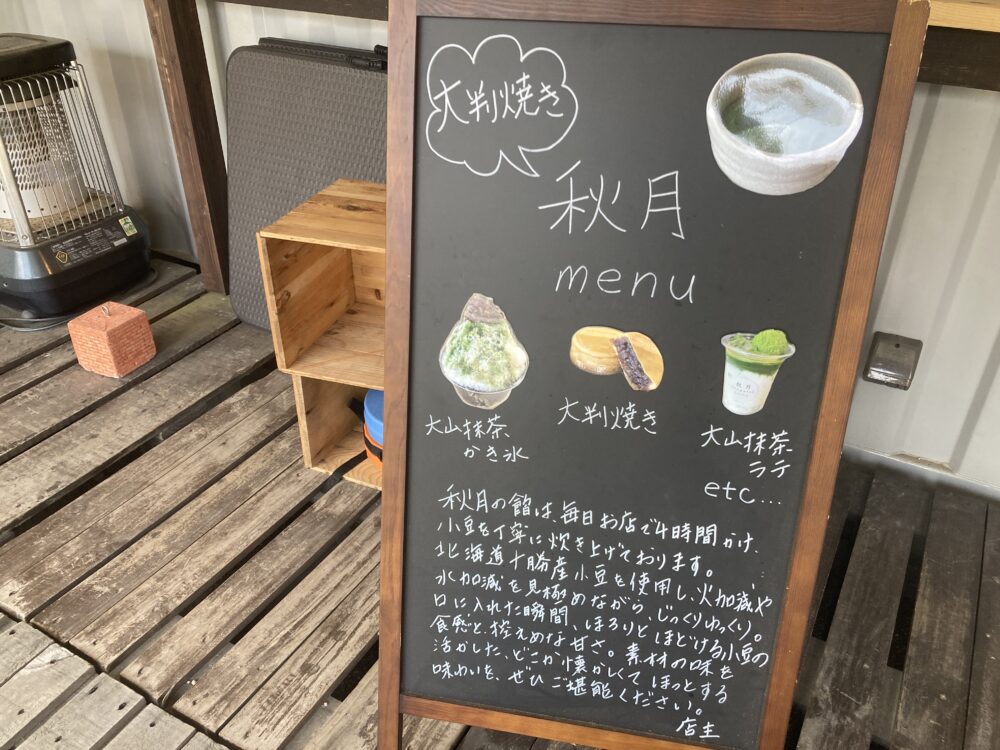 大判焼き
秋月
menu
大山抹茶
かき氷
大判焼き
秋月
大山抹茶
ラテ
etc...
秋月の餡は、毎日お店で4時間かけ、
小豆を丁寧に炊き上げております。
北海道十勝産小豆を使用し、火加減や
水加減を見極めながら、じっくりゆっくり。
口に入れた瞬間、ほろりとほどける小豆の
食感と、控えめな甘さ。素材の味を
活かした、どこか懐かしくてほっとする
味わいを、ぜひご堪能ください。
店主